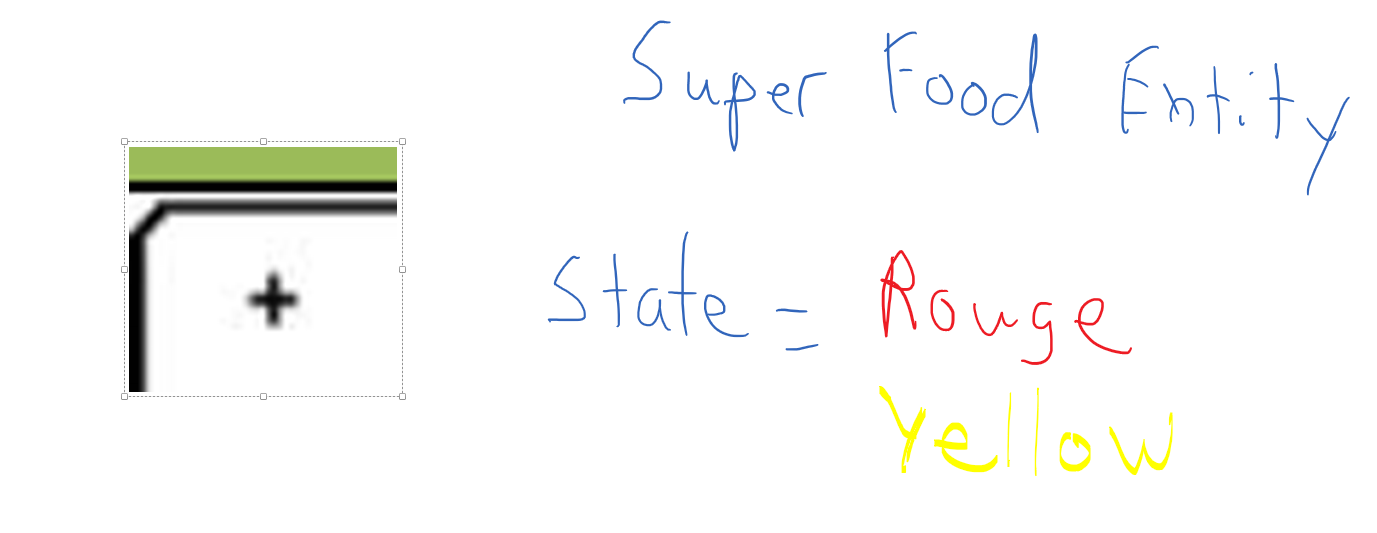 Super Food Entity
State = Rouge
Yellow